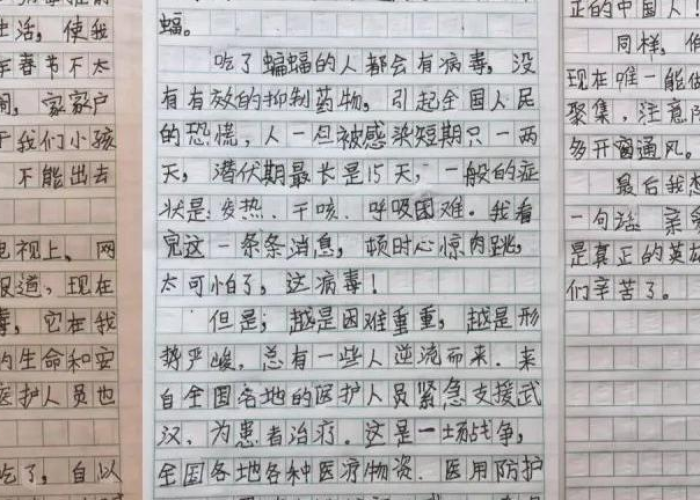 生活，使我
年春节不太
闹，家家户
于我们小孩
不能出去
电视上、网
报道，现在
毒，它在我
的生命和安
医护人员也
吃了，自以
蝠。
吃了蝙蝠的人都会有病毒，没
有有效的抑制药物，引起全国人民
的恐慌，人一但被感染短期只一两
天，潜伏期最长是15天，一般的症
状是：发热、干咳、呼吸困难。我看
完这一条条消息，顿时心惊肉跳，
太可怕了，这病毒！
但是；越是困难重重，越是形
势严峻，总有一些人逆流而来．来
自全国各地的医护人员紧急支援武
汉，为患者治疗．这是一场战争，
全国各地各种医疗物资、医用防护
正的中国人！
同样，
现在唯一能
聚集，注意
多开窗通风。
最后我
一句话：亲
是真正的英
们辛苦了。